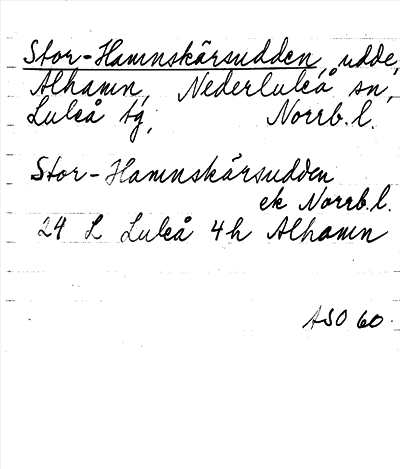 Stor-Hamnskärsudden, udde,
Alhamn, Nederluleå sn,
Luleå tg, Norrb. l.
Stor-Hamnskärsudden
ek Norrb. l.
24 L Luleå 4h Alhamn
ASO 60.